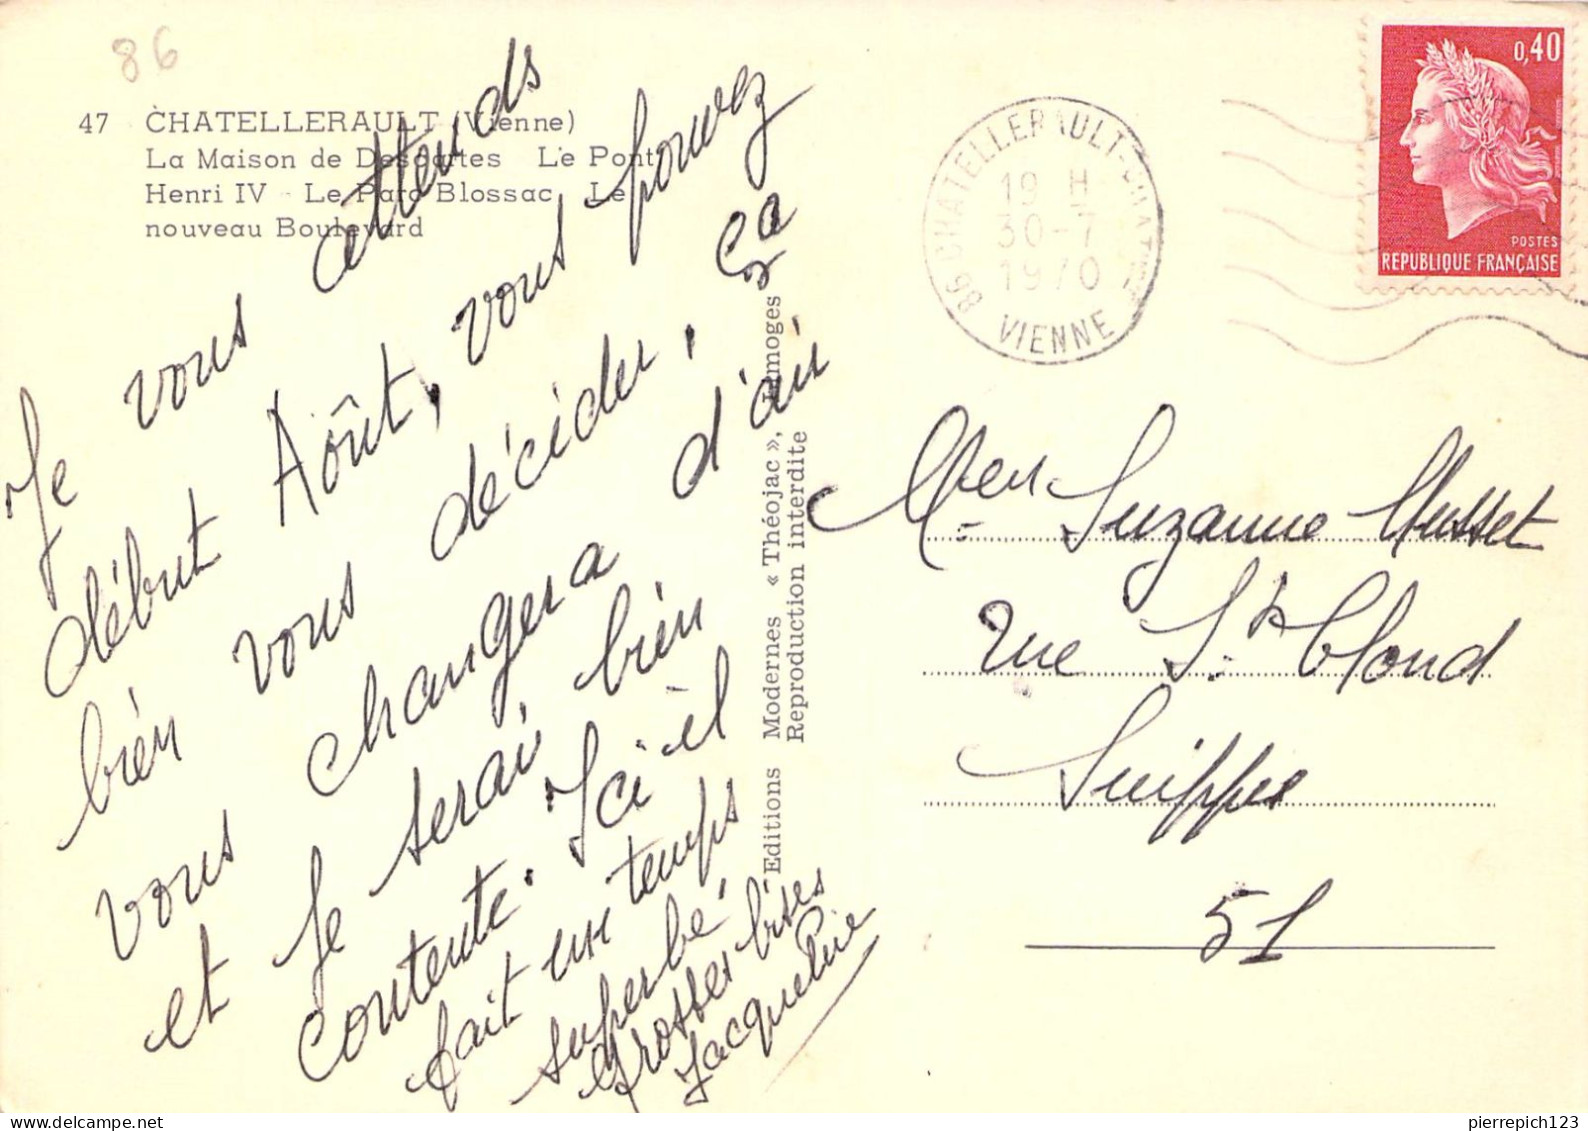 86
47 CHATELLERAULT (Vienne)
La Maison de Descartes Le Pont
Henri IV - Le Parc Blossac Le
nouveau Boulevard
Je vous attends
début Août, vous pouvez
bien vous décider, ça
vous changera d'air
et je serai bien
contente. Ici il
fait un temps
superbe,
Grosses bises
Jacqueline
Editions Modernes « Théojac », Limoges
Reproduction interdite
86 CHATELLERAULT-CHATEAUNEUF
19 H
30-7
1970
VIENNE
0,40
POSTES
REPUBLIQUE FRANÇAISE
Suzanne Musset
rue St Cloud
Suippes
51
pierrepich123